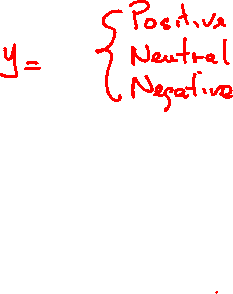 Positive
y = { Neutral
Negative